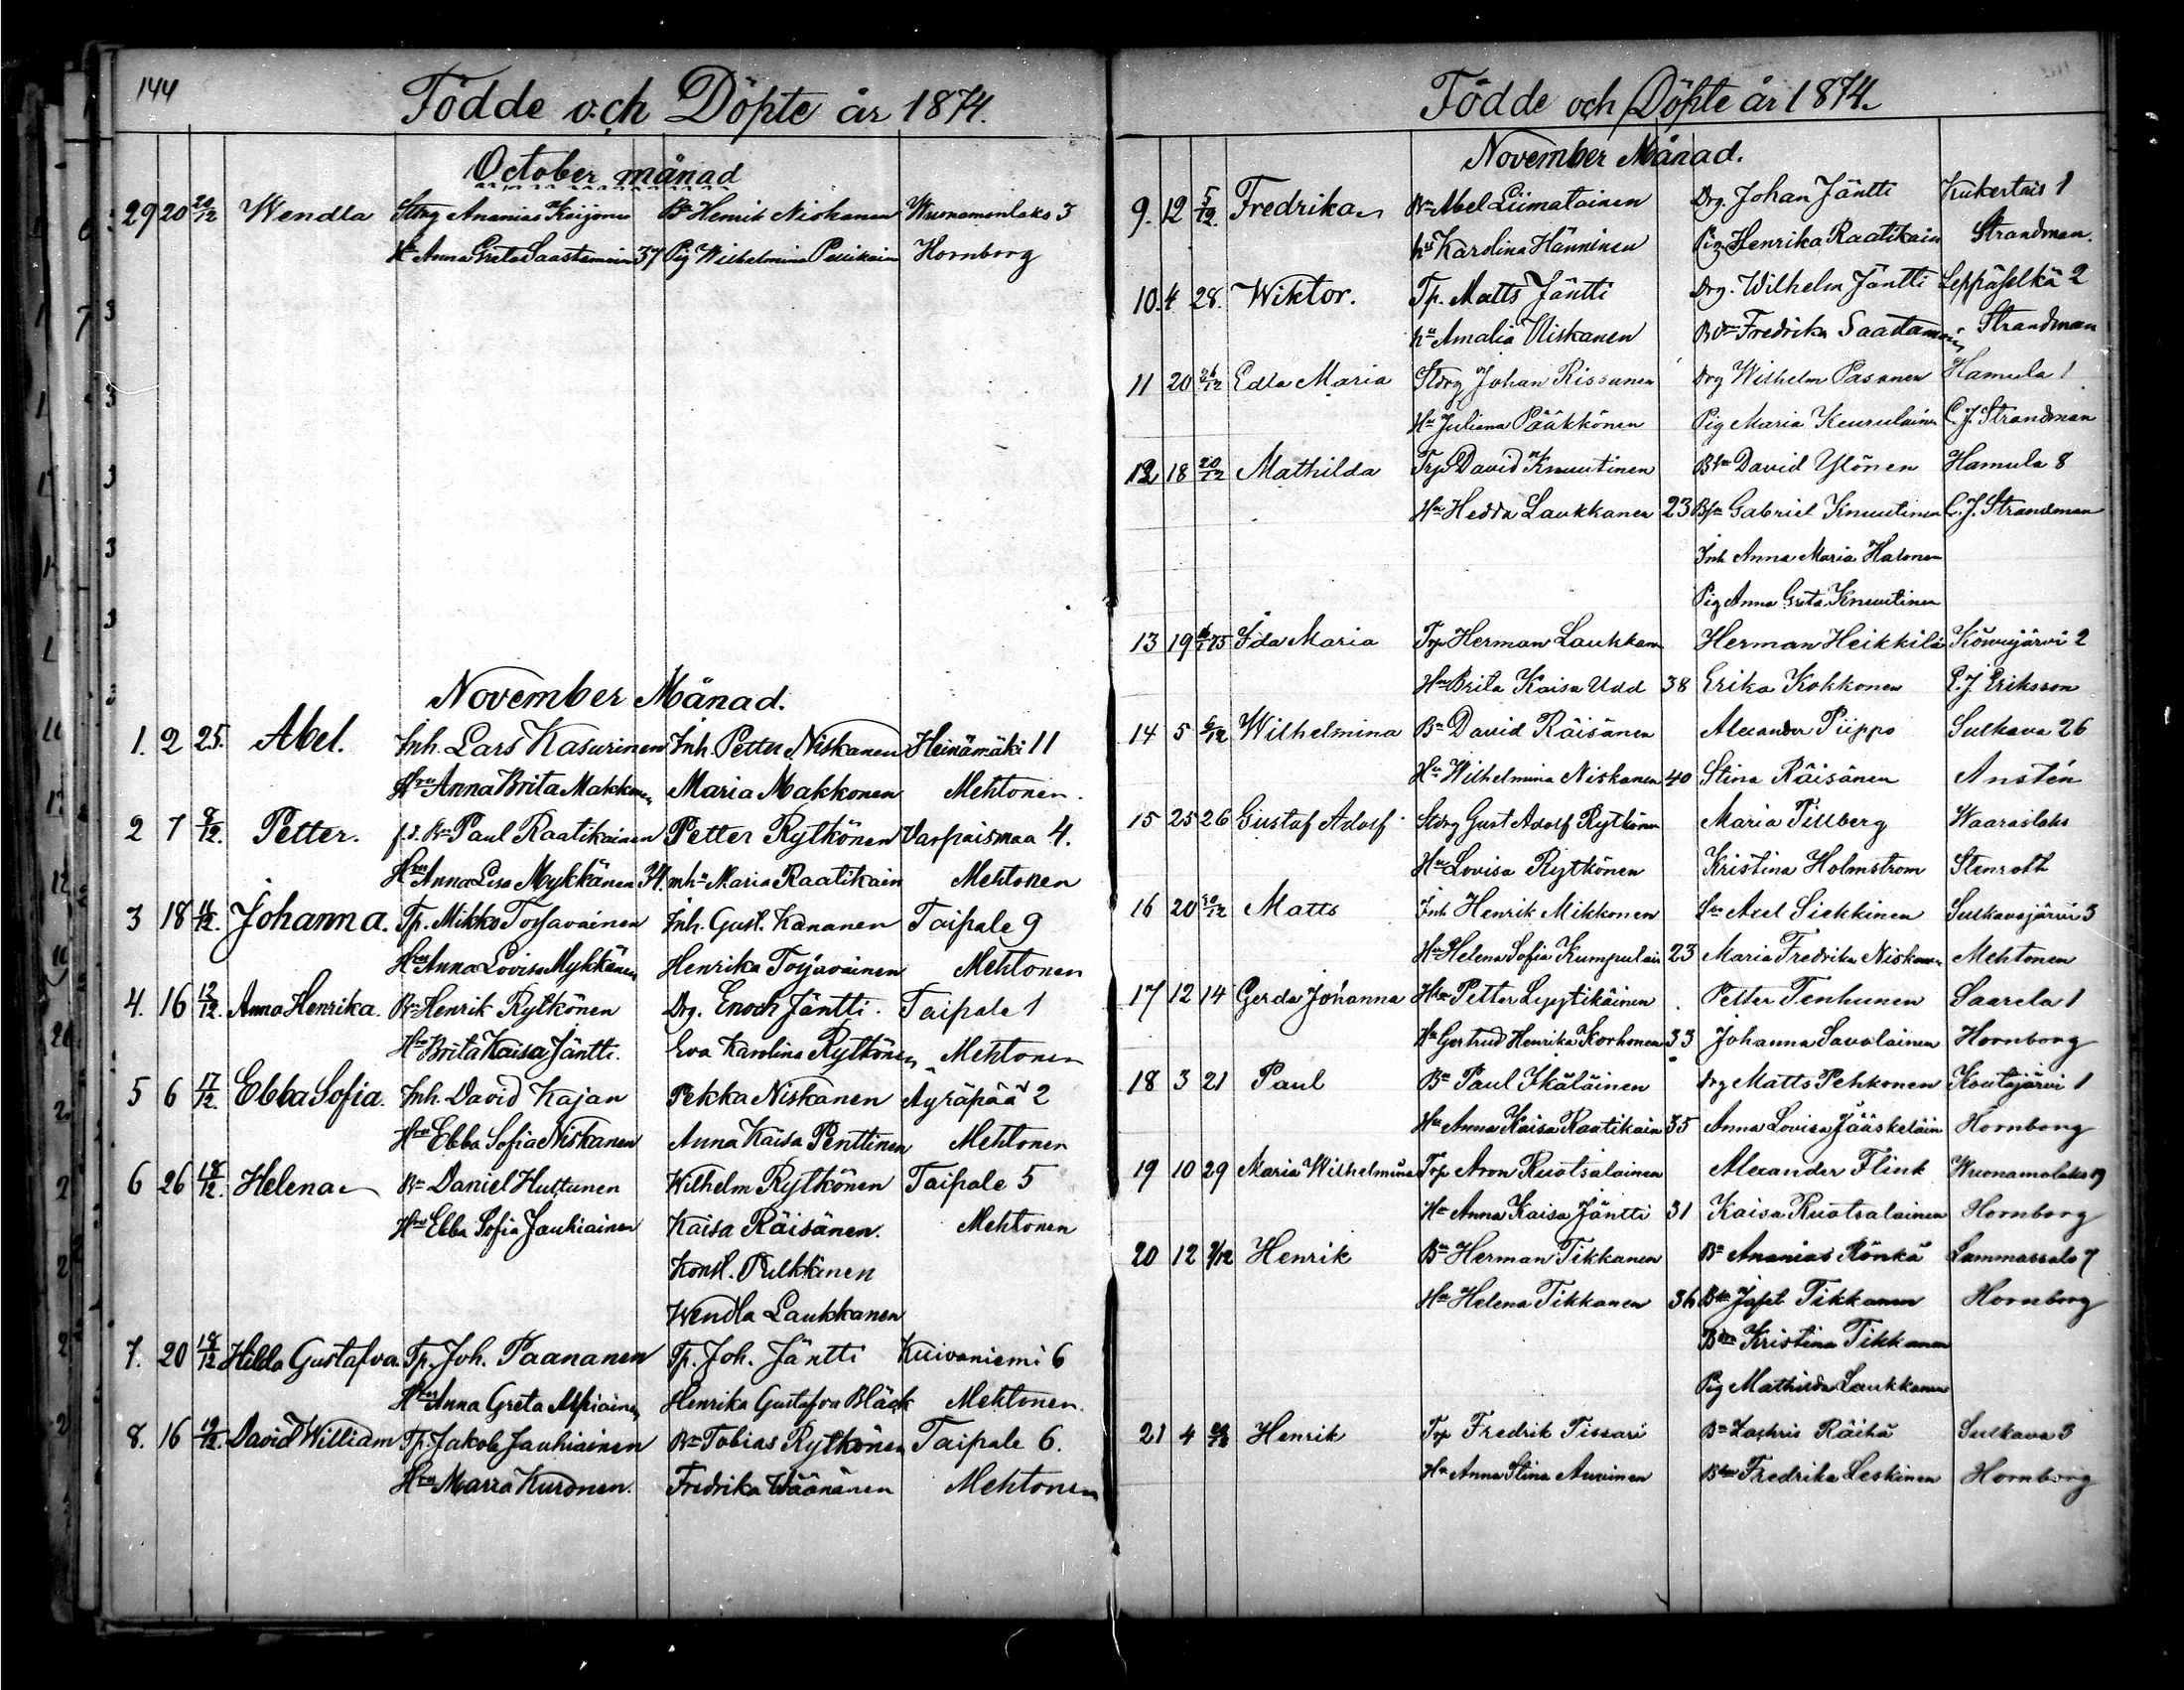 144
Födde och Döpte år 1874.
October månad
29 20 20/12 Wendla Stdrg Ananias Kaijonen Bn Henrik Niskanen Wuonamonlaks 3
Hu Anna Greta Saastamoin 37 Pig Wilhelmina Pellikain Hornborg
November Månad.
1. 2 25. Abel. Inh. Lars Kasurinen Inh. Petter Niskanen Heinämäki 11
Hru Anna Brita Makkonen Maria Makkonen Mehtonen.
2 7 9/12. Petter. f.d. Bn Paul Raatikainen Petter Rytkönen Varpaismaa 4.
Hru Anna Lisa Mykkänen 34. mhu Maria Raatikain Mehtonen
3 18 Johanna. Tp. Mikko Torjavainen Inh. Gust. Kananen Taipale 9
Hru Anna Lovisa Mykkänen Henrika Torjavainen Mehtonen
4. 16 12/12. Anna Henrika. Bn Henrik Rytkönen Drg. Enoch Jäntti. Taipale 1
Hru Brita Kaisa Jäntti. Eva Karolina Rytkönen Mehtonen
5 6 17/12. Ebba Sofia. Inh. David Kajan Pekka Niskanen Äyräpää 2
Hru Ebba Sofia Niskanen Anna Kaisa Penttinen Mehtonen
6 26 18/12. Helena Bn Daniel Huttunen Wilhelm Rytkönen Taipale 5
Hru Ebba Sofia Jauhiainen Kaisa Räisänen. Mehtonen
Konst. Pulkkinen
Wendla Laukkanen
7. 20 18/12 Hilda Gustafva. Tp. Joh. Paananen Tp. Joh. Jäntti Kuivaniemi 6
Hru Anna Greta Miiainen Henrika Gustafva Bläck Mehtonen.
8. 16 19/12. David William Tp. Jakob Jauhiainen Bn Tobias Rytkönen Taipale 6.
Hru Maria Kuronen. Fredrika Wäänänen Mehtonen
Födde och Döpte år 1874.
November Månad.
9. 12 5/12. Fredrika Bn Abel Liimatainen Drg. Johan Jäntti Kukertais 1
hu Karolina Hänninen Pig. Henrika Raatikain Strandman.
10. 4 28. Wiktor. Tp. Matts Jäntti Drg. Wilhelm Jäntti Leppäselkä 2
hu Amalia Niskanen Bdr Fredrika Saastamoin Strandman
11 20 26/12 Edla Maria Stdrg Johan Rissanen Drg Wilhelm Pasanen Hamula 1
Hu Juliana Pääkkönen Pig Maria Keurulainen C. J. Strandman
12 18 20/12 Mathilda Trp David Knuutinen Bsn David Ylönen Hamula 8
Hu Hedda Laukkanen 23 Bsn Gabriel Knuutinen C. J. Strandman
Inh Anna Maria Halonen
Pig Anna Greta Knuutinen
13 19 Ida Maria Trp Herman Laukkanen Herman Heikkilä Kõwejärvi 2
Hu Brita Kaisa Udd 38 Erika Kokkonen E. J. Eriksson
14 5 6/12 Wilhelmina Bn David Räisänen Alexander Piippo Sulkava 26
Hu Wilhelmina Niskanen 40 Stina Räisänen Anstén
15 25 26 Gustaf Adolf Stdrg Gust Adolf Rytkönen Maria Tillberg Waaraslaks
Hu Lovisa Rytkönen Kristina Holmstrom Stenroth
16 20 20/12 Matts Inh Henrik Mikkonen Axel Siekkinen Sulkavajärvi 3
Hu Helena Sofia Kumpulain 23 Maria Fredrika Niskanen Mehtonen
17 12 14 Gerda Johanna Petter Lyytikäinen Petter Tenhunen Saarela 1
Hu Gertrud Henrika Korhonen 33 Johanna Savolainen Hornborg
18 3 21 Paul Bn Paul Ikäläinen Drg Matts Pehkonen Koutajärvi 1
Hu Anna Kaisa Raatikain 35 Anna Lovisa Jääskeläin Hornborg
19 10 29 Maria Wilhelmina Trp Aron Ruotsalainen Alexander Flink Wuonamolaks 19
Hu Anna Kaisa Jäntti 31 Kaisa Ruotsalainen Hornborg
20 12 9/12 Henrik Bn Herman Tikkanen Bn Ananias Rönkä Lammassalo 7
Hu Helena Tikkanen 36 Bsn Japet Tikkanen Hornborg
Bdr Kristina Tikkanen
Pig Mathilda Laukkanen
21 4 Henrik Trp Fredrik Tissari Bn Zachris Räihä Sulkava 3
Hu Anna Stina Auvinen Fredrika Leskinen Hornborg